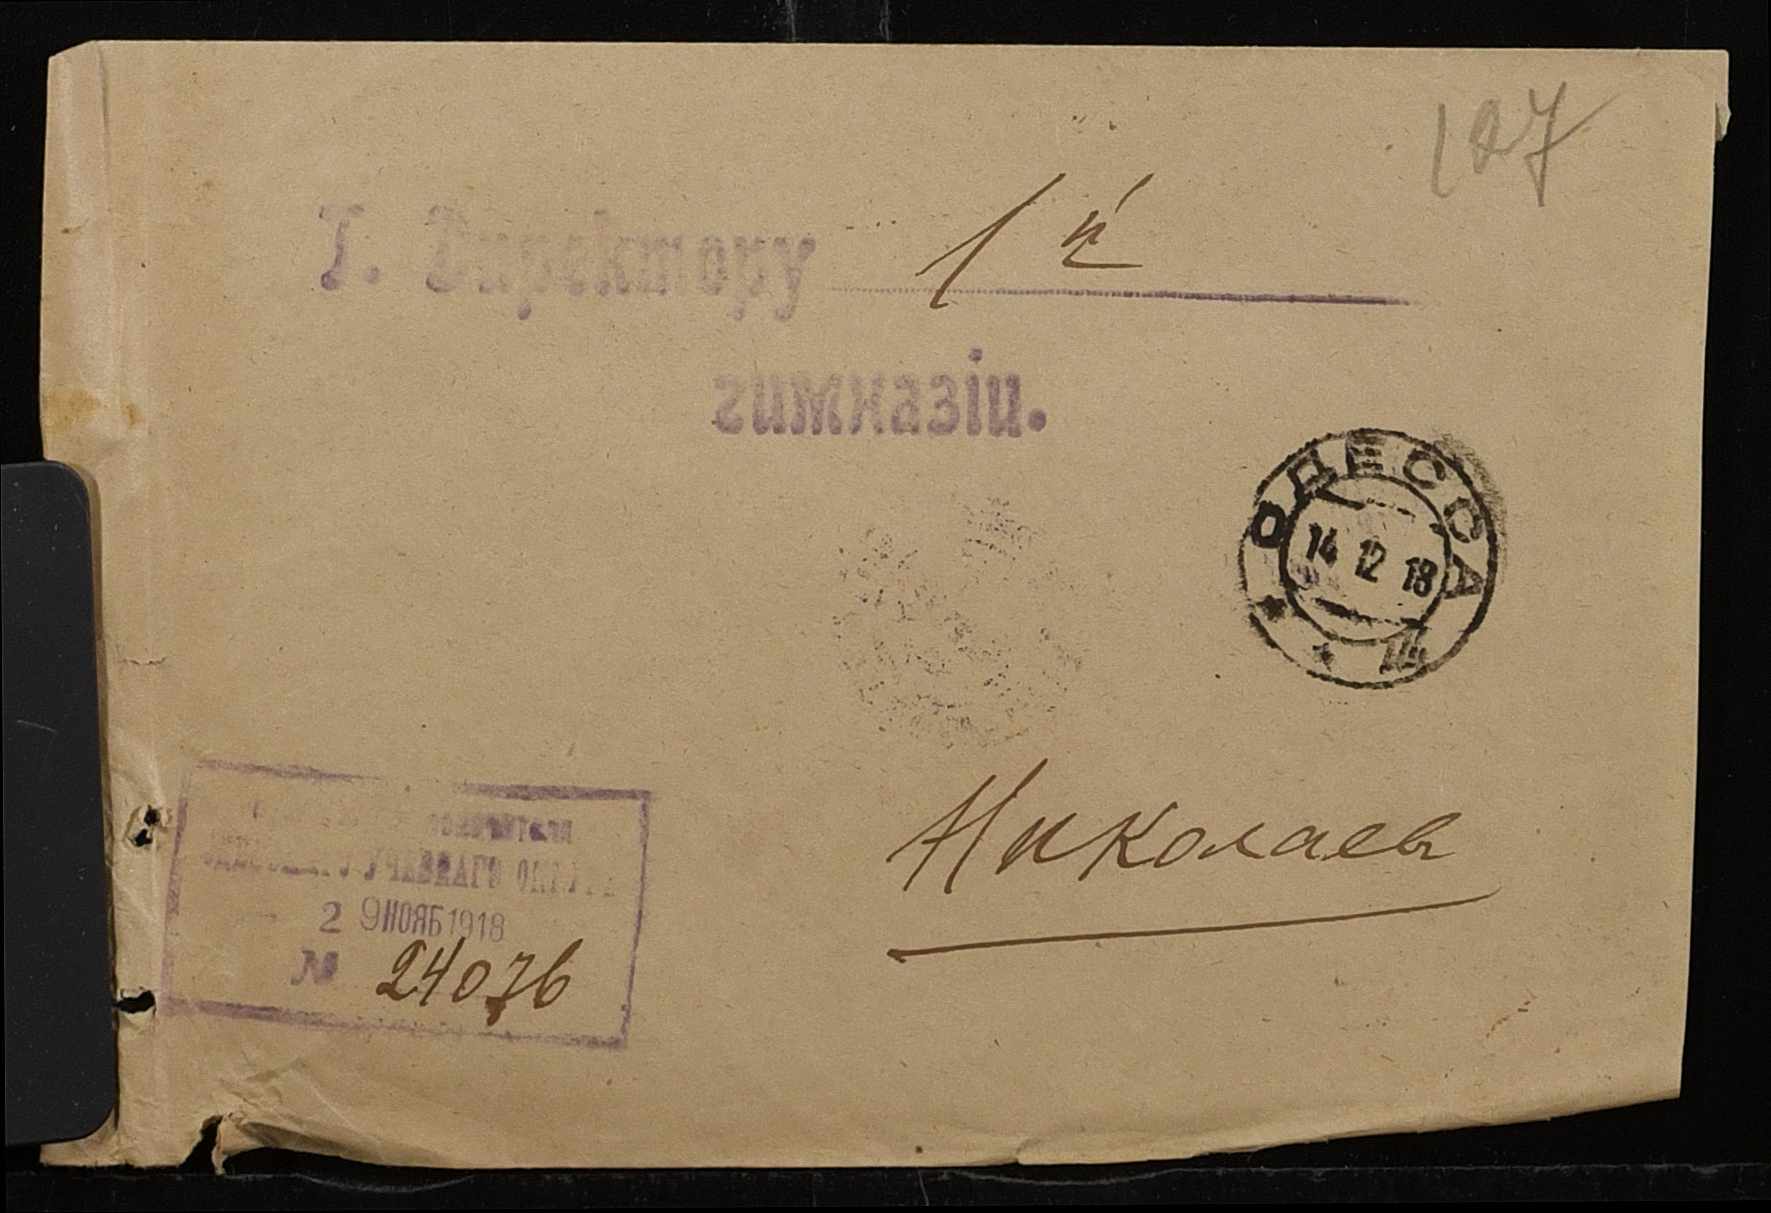 127
Г. Директору 1й
гимназіи.
ОДЕССА
14 12 18
Николаев
попечителя
ОДЕССКАГО УЧЕБНАГО ОКРУГА
29 НОЯБ 1918
№ 24076